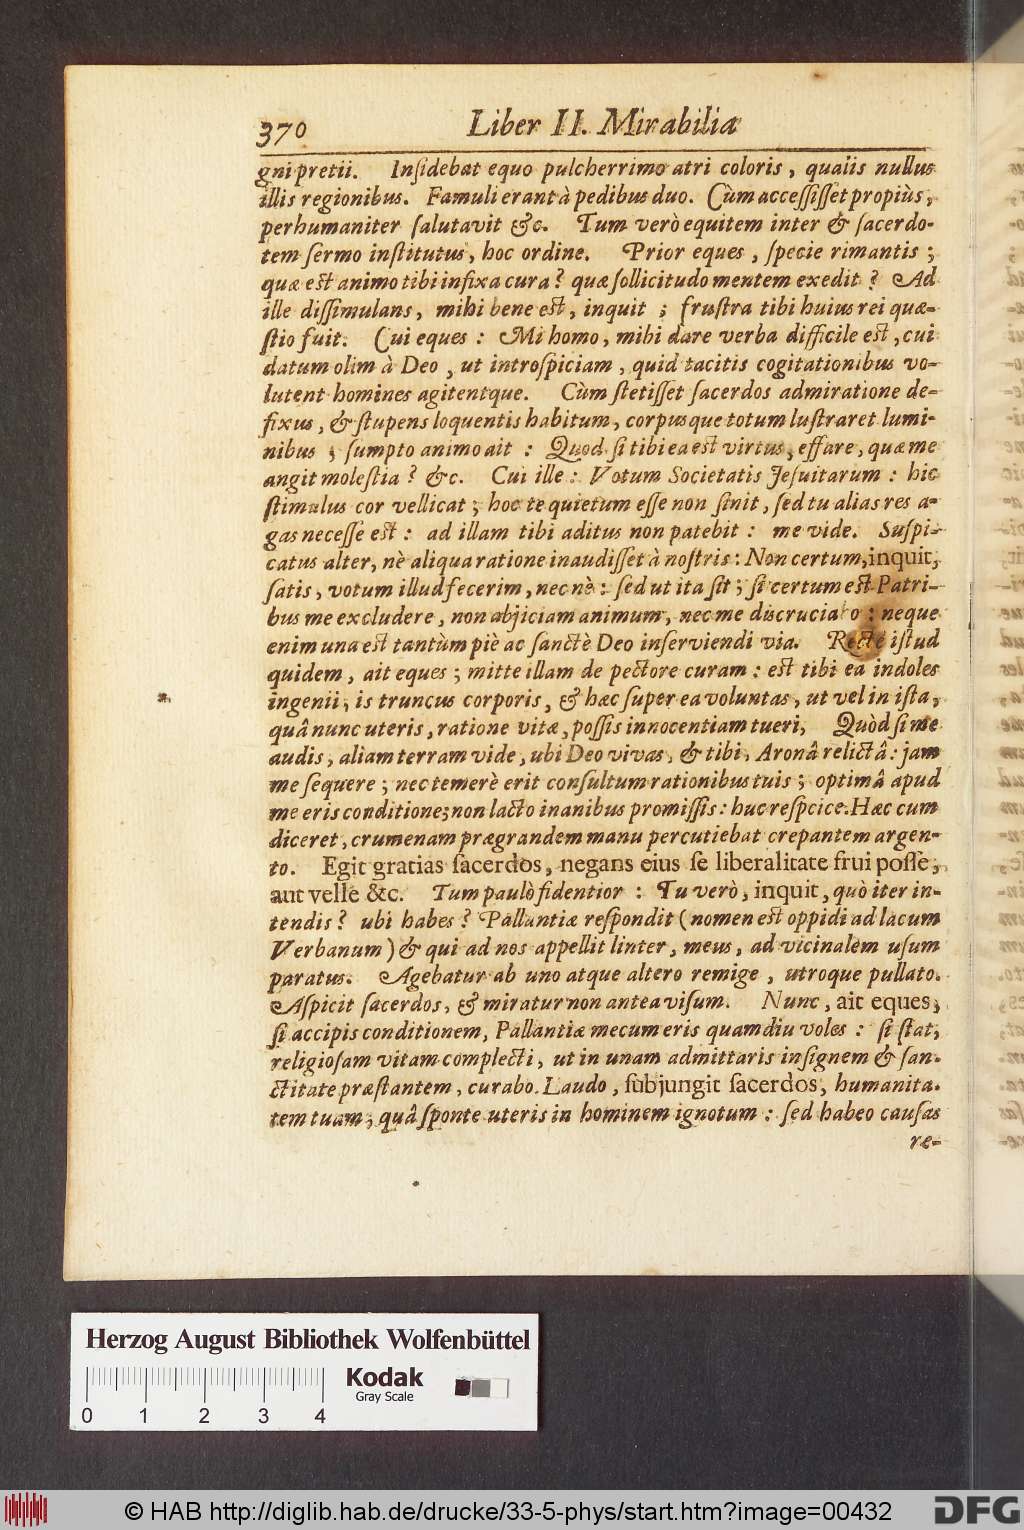 370 Liber II. Mirabiliæ
gni pretii. Insidebat equo pulcherrimo atri coloris, qualis nullus
illis regionibus. Famuli erant à pedibus duo. Cùm accessisset propiùs,
perhumaniter salutavit &c. Tum verò equitem inter & sacerdo-
tem sermo institutus, hoc ordine. Prior eques, specie rimantis;
quæ est animo tibi infixa cura? quæ sollicitudo mentem exedit? Ad
ille dissimulans, mihi bene est, inquit; frustra tibi huius rei quæ-
stio fuit. Cui eques: Mi homo, mihi dare verba difficile est, cui
datum olim à Deo, ut introspiciam, quid tacitis cogitationibus vo-
lutent homines agitentque. Cùm stetisset sacerdos admiratione de-
fixus, & stupens loquentis habitum, corpusque totum lustraret lumi-
nibus; sumpto animo ait: Quod si tibi ea est virtus, effare, quæ me
angit molestia? &c. Cui ille: Votum Societatis Jesuitarum: hic
stimulus cor vellicat; hoc te quietum esse non sinit, sed tu alias res a-
gas necesse est: ad illam tibi aditus non patebit: me vide. Suspi-
catus alter, nè aliqua ratione inaudisset à nostris: Non certum, inquit,
satis, votum illud fecerim, nec nè: sed ut ita sit; si certum est Patri-
bus me excludere, non abjiciam animum, nec me discruciabo: neque
enim una est tantùm piè ac sanctè Deo inserviendi via. Rectè istud
quidem, ait eques; mitte illam de pectore curam: est tibi ea indoles
ingenii, is truncus corporis, & hæc super ea voluntas, ut vel in ista,
quâ nunc uteris, ratione vitæ, possis innocentiam tueri, Quòd si me
audis, aliam terram vide, ubi Deo vivas, & tibi, Aronâ relictâ: jam
me sequere; nec temerè erit consultum rationibus tuis; optimâ apud
me eris conditione; non lacto inanibus promissis: huc respice. Hæc cum
diceret, crumenam prægrandem manu percutiebat crepantem argen-
to. Egit gratias sacerdos, negans eius se liberalitate frui posse,
aut velle &c. Tum paulò fidentior: Tu verò, inquit, quò iter in-
tendis? ubi habes? Pallantiæ respondit (nomen est oppidi ad lacum
Verbanum) & qui ad nos appellit linter, meus, ad vicinalem usum
paratus. Agebatur ab uno atque altero remige, utroque pullato.
Aspicit sacerdos, & miratur non antea visum. Nunc, ait eques,
si accipis conditionem, Pallantiæ mecum eris quamdiu voles: si stat,
religiosam vitam complecti, ut in unam admittaris insignem & san-
ctitate præstantem, curabo. Laudo, subjungit sacerdos, humanita-
tem tuam, quâ sponte uteris in hominem ignotum: sed habeo causas
re-
Herzog August Bibliothek Wolfenbüttel
Kodak
Gray Scale
0 1 2 3 4
© HAB http://diglib.hab.de/drucke/33-5-phys/start.htm?image=00432
DFG